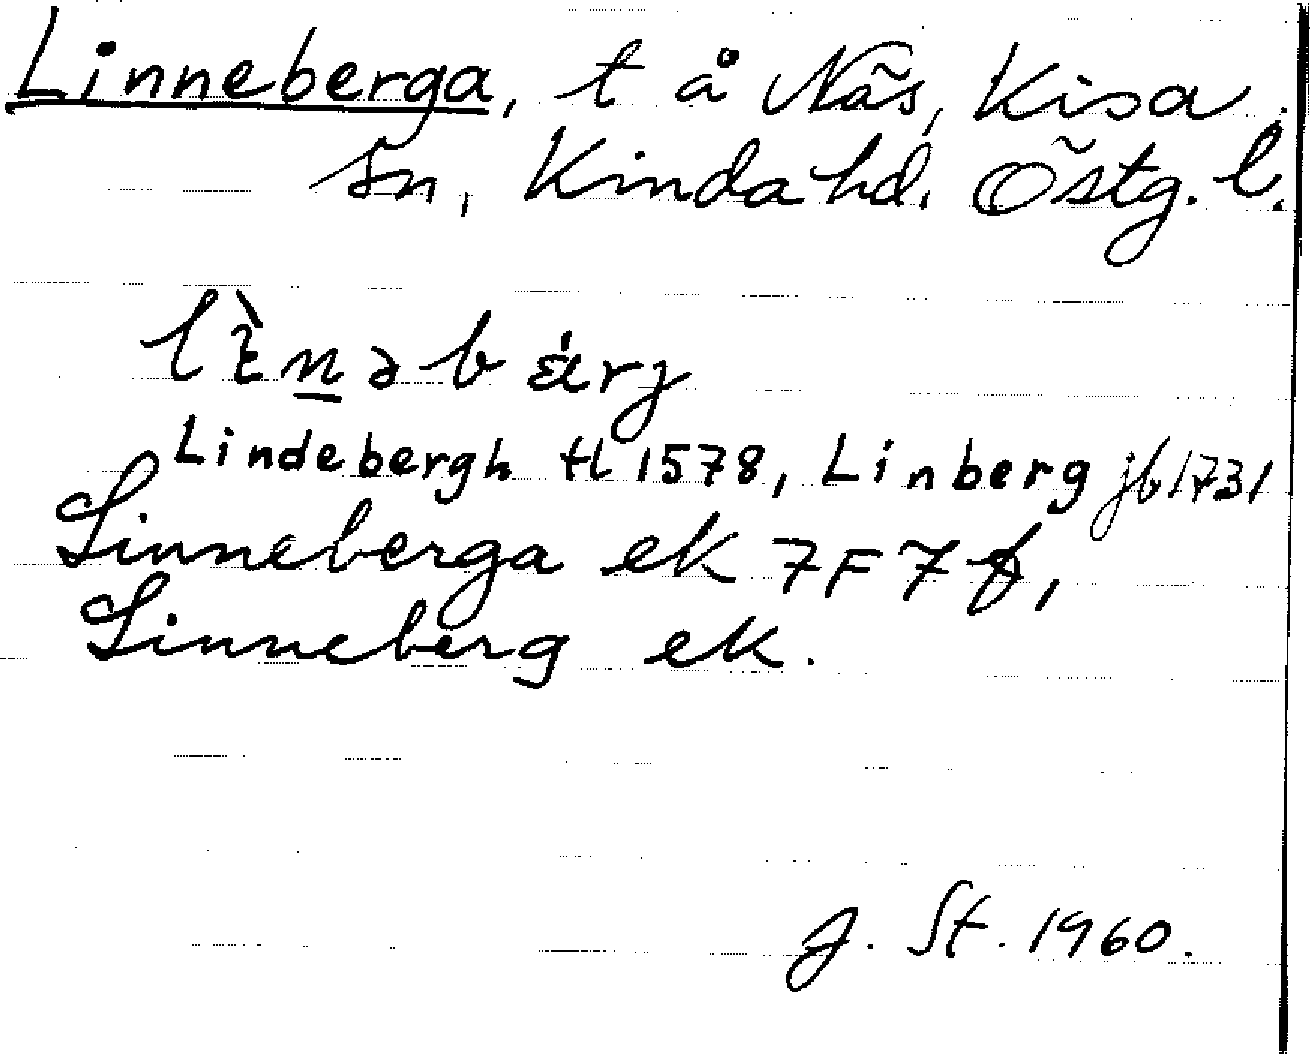 Linneberga, t å Näs, Kisa
sn, Kinda hd. Östg. l.
lìnəbárj
Lindebergh tl 1578, Linberg jb 1731
Linneberga ek 7F7f,
Linneberg ek.
J. St. 1960.